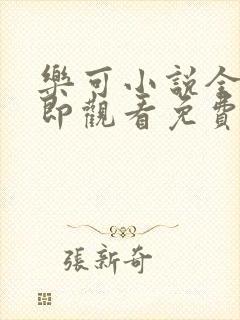 樂可小說全
即觀看免費
張新奇